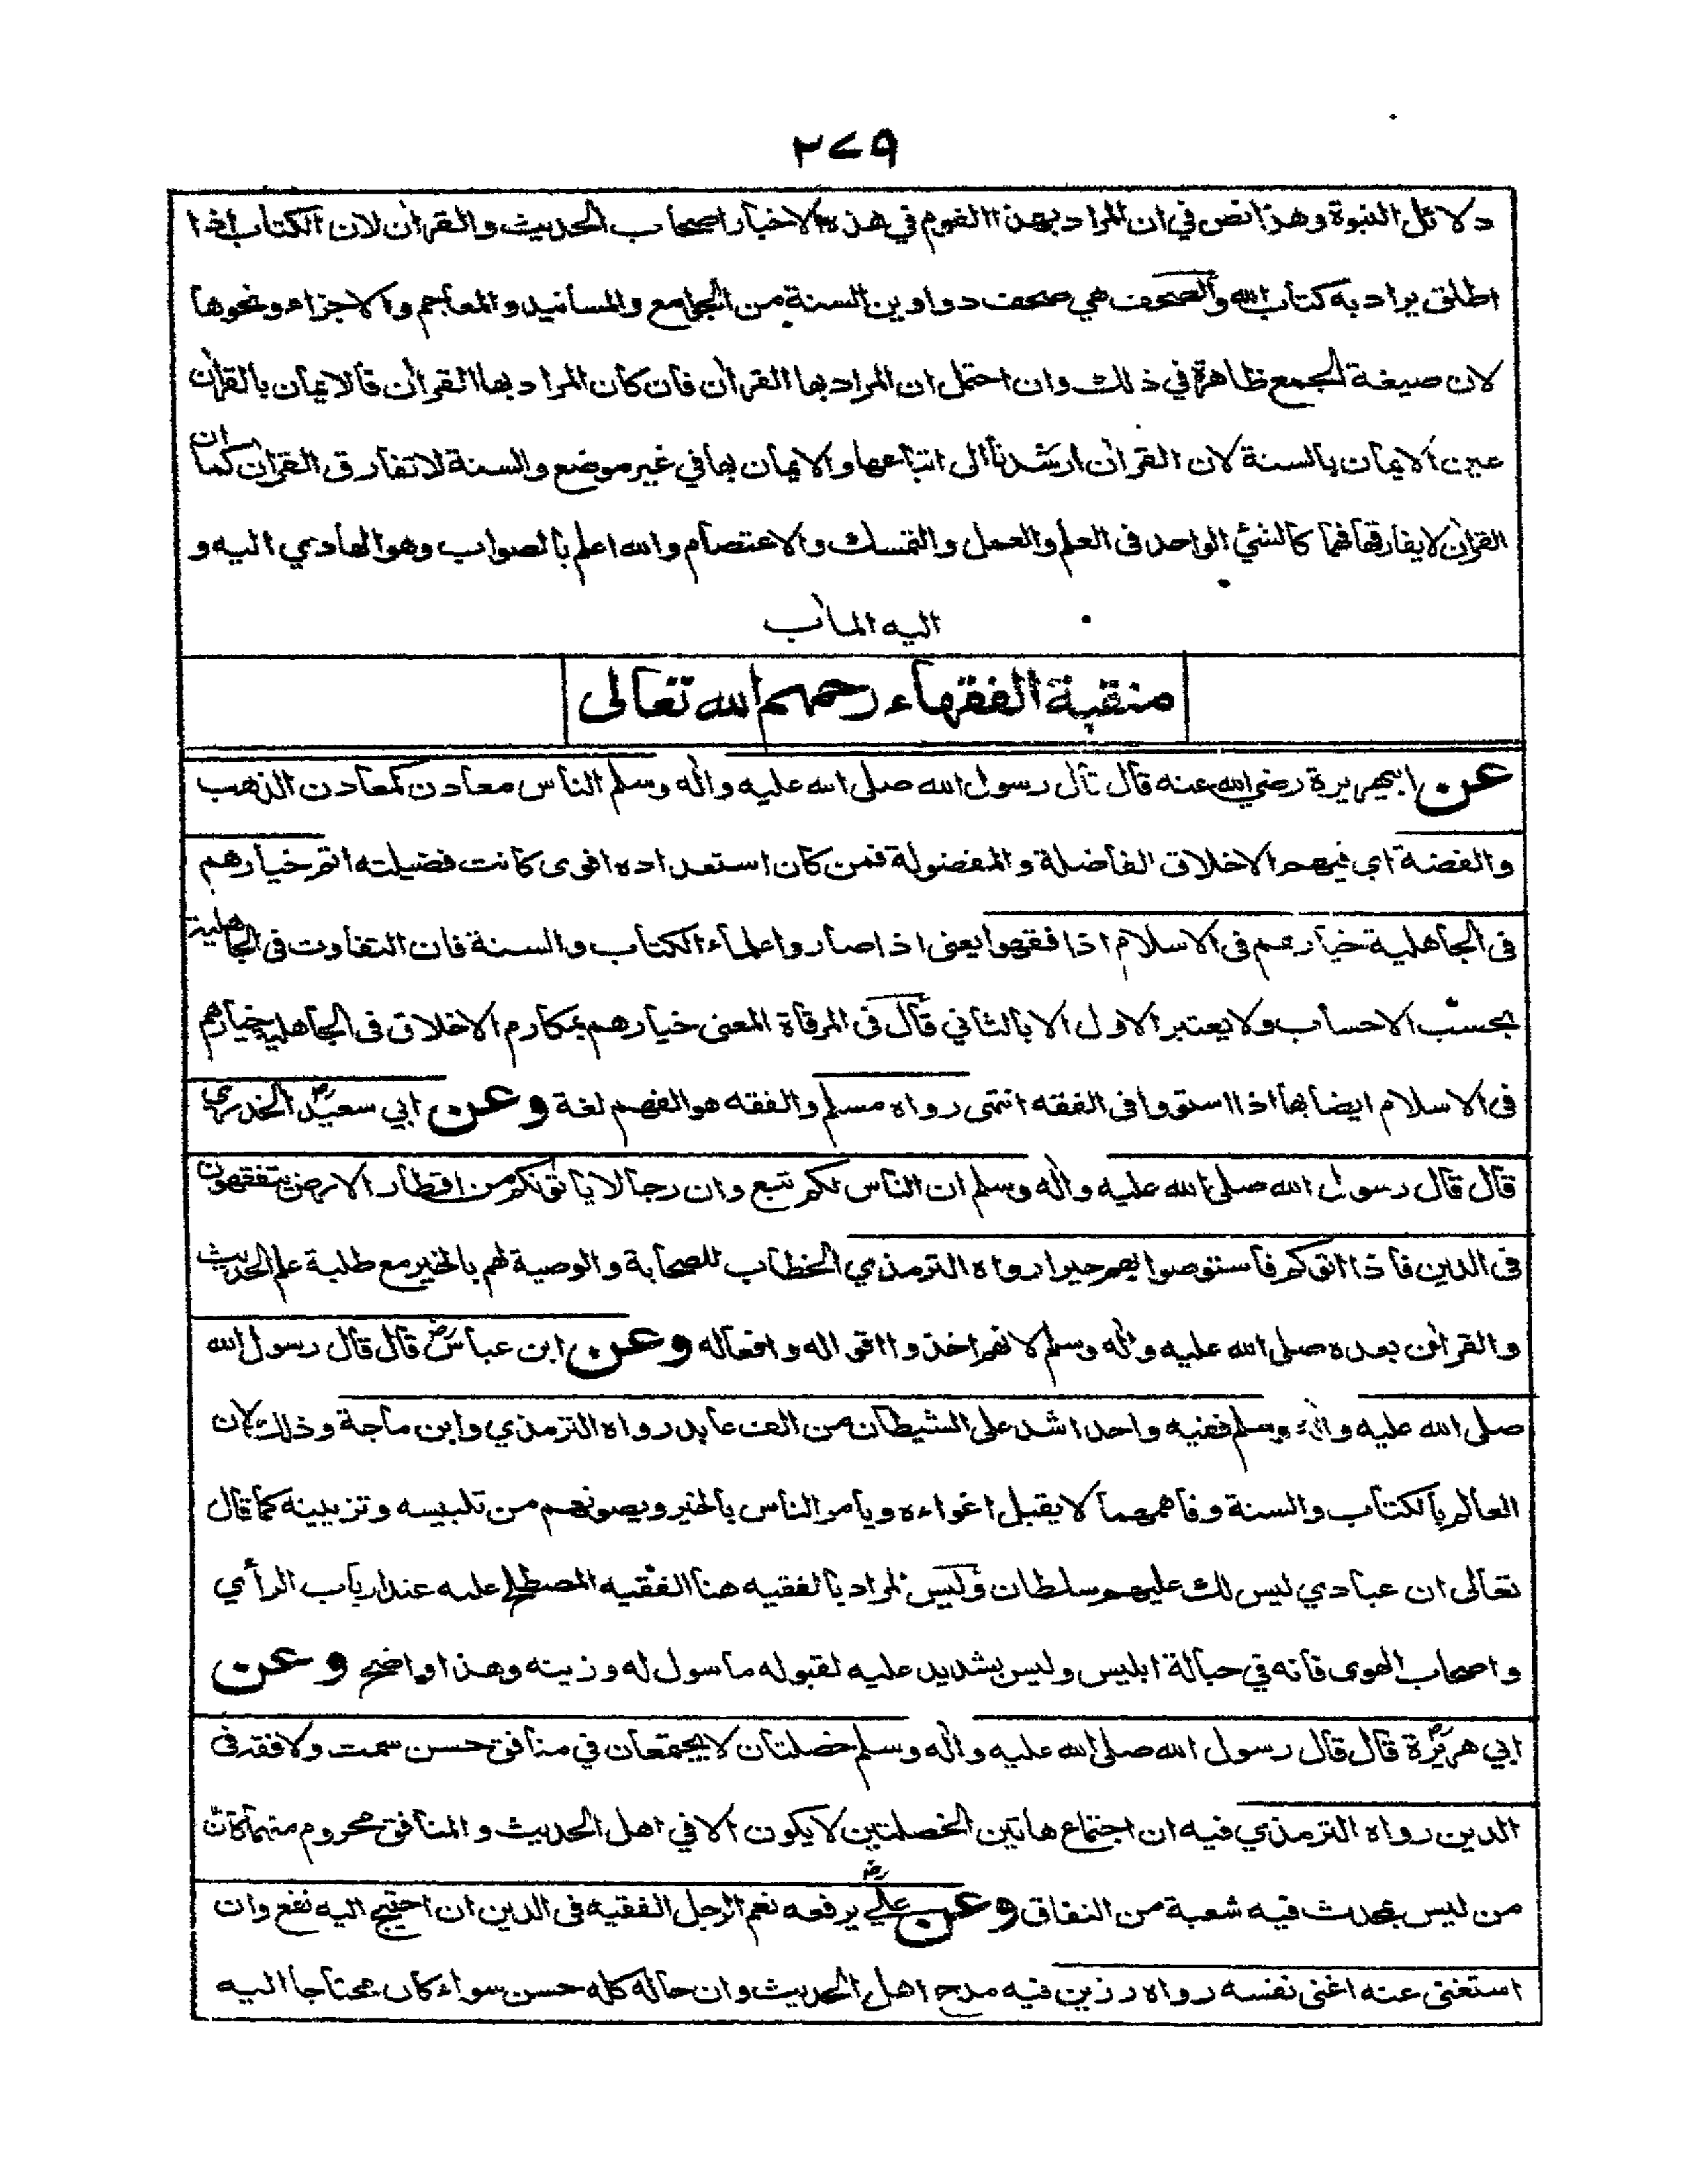 ٢٧٩
دلائل النبوة وهذا نص في ان المراد بهذا القوم في هذه الاخبار اصحاب الحديث والقرآن لان الكتاب اذا
اطلق يراد به كتاب الله والصحف هي صحف دواوين السنة من الجوامع والمسانيد والمعاجم والاجزاء ونحوها
لان صيغة الجمع ظاهرة في ذلك وان احتمل ان المراد بها القرآن فان كان المراد بها القرآن فالايمان بالقرآن
عين الايمان بالسنة لان القرآن ارشدنا الى اتباعها والايمان بها في غير موضع والسنة لا تفارق القرآن كما ان
القرآن لا يفارقها فهما كالشئ الواحد فى العلم والعمل والتمسك والاعتصام والله اعلم بالصواب وهو الهادي اليه و
اليه المآب
منقبة الفقهاء رحمهم الله تعالى
عن ابيهريرة رضي الله عنه قال قال رسول الله صلى الله عليه وآله وسلم الناس معادن كمعادن الذهب
والفضة اي فيهم الاخلاق الفاضلة والمفضولة فمن كان استعداده اقوى كانت فضيلته اتم خيارهم
فى الجاهلية خيارهم فى الاسلام اذا فقهوا يعنى اذا صاروا علماء الكتاب والسنة فان التفاوت فى الجاهلية
بحسب الاحساب ولا يعتبر الاول الا بالثاني قال فى المرقاة المعنى خيارهم بمكارم الاخلاق فى الجاهلية خيارهم
فى الاسلام ايضا بها اذا استووا فى الفقه انتهى رواه مسلم والفقه هو الفهم لغة وعن ابي سعيد الخدري
قال قال رسول الله صلى الله عليه وآله وسلم ان الناس لكم تبع وان رجالا يأتونكم من اقطار الارض يتفقهون
فى الدين فاذا اتوكم فاستوصوا بهم خيرا رواه الترمذي الخطاب للصحابة والوصية لهم بالخير مع طلبة علم الحديث
والقرآن بعده صلى الله عليه وآله وسلم لانهم اخذوا اقواله وافعاله وعن ابن عباس رض قال قال رسول الله
صلى الله عليه وآله وسلم فقيه واحد اشد على الشيطان من الف عابد رواه الترمذي وابن ماجة وذلك لان
العالم بالكتاب والسنة وفاهمهما لا يقبل اغواءه ويأمر الناس بالخير ويصونهم من تلبيسه وتزيينه كما قال
تعالى ان عبادي ليس لك عليهم سلطان وليس المراد بالفقيه هنا الفقيه المصطلح عليه عند ارباب الرأي
واصحاب الهوى فانه في حبالة ابليس وليس بشديد عليه لقبوله ما سول له وزينه وهذا واضح وعن
ابي هريرة رض قال قال رسول الله صلى الله عليه وآله وسلم خصلتان لا يجتمعان في منافق حسن سمت ولا فقه فى
الدين رواه الترمذي فيه ان اجتماع هاتين الخصلتين لا يكون الا في اهل الحديث والمنافق محروم منهما كان
من ليس بمحدث فيه شعبة من النفاق وعن علي رض يرفعه نعم الرجل الفقيه فى الدين ان احتيج اليه نفع وان
استغنى عنه اغنى نفسه رواه رزين فيه مدح اهل الحديث وان حاله كله حسن سواء كان محتاجا اليه